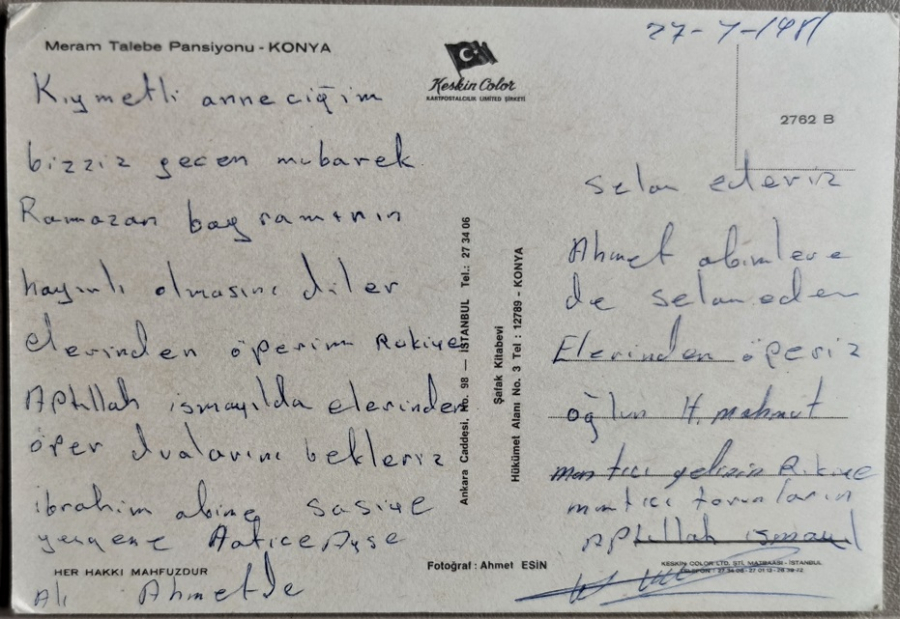 Meram Talebe Pansiyonu - KONYA
Kıymetli anneciğim
bizziz geçen mubarek
Ramazan bayramının
hayırılı olmasını diler
elerinden öperim Rukiye
Aptullah ismayılda elerinden
öper dualarını bekleriz
ibrahim abime sasiye
yengene Haticeayse
HER HAKKI MAHFUZDUR
Ali Ahmetde
Keskin Color
KARTPOSTALCILIK LİMİTED ŞİRKETİ
Ankara Caddesi, No. 98 — İSTANBUL Tel.: 27 34 06
Şafak Kitabevi
Hükümet Alanı No. 3 Tel : 12789 - KONYA
Fotoğraf : Ahmet ESİN
27-7-1981
2762 B
selam ederiz
Ahmet abimlere
de selam eden
Elerinden öperiz
oğlun H. mahmut
gelinin Rukiye
torunların
Aptullah ismayıl
KESKİN COLOR LTD. ŞTİ. MATBAASI - İSTANBUL